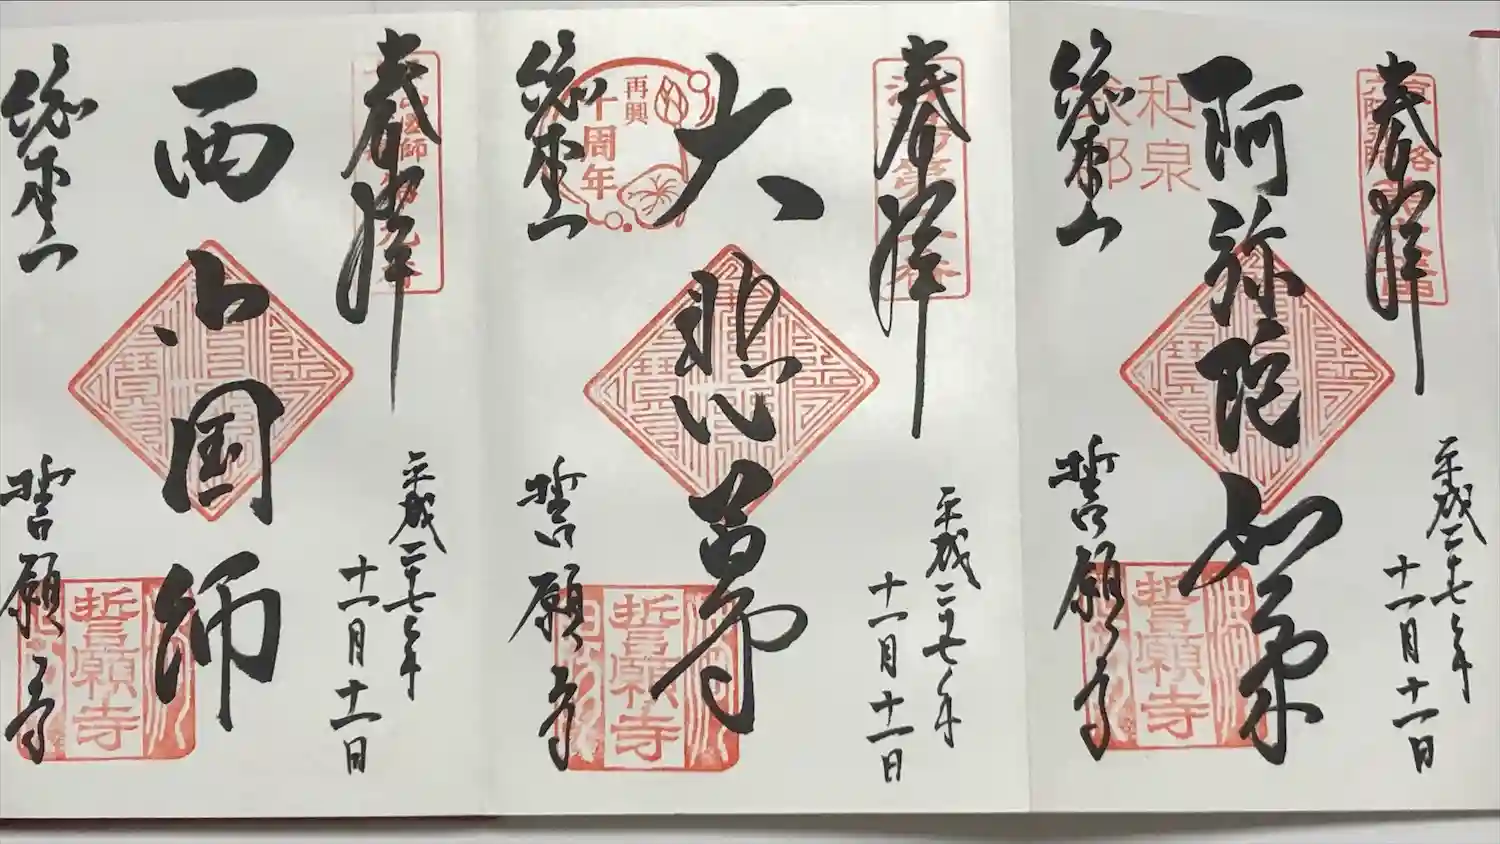 奉拝
平成二十七年
十一月十一日
阿弥陀如来
和泉
総本山
誓願寺
誓願寺
奉拝
平成二十七年
十一月十一日
大悲尊
再興
十周年
総本山
誓願寺
誓願寺
奉拝
平成二十七年
十一月十一日
西山国師
総本山
誓願寺
誓願寺